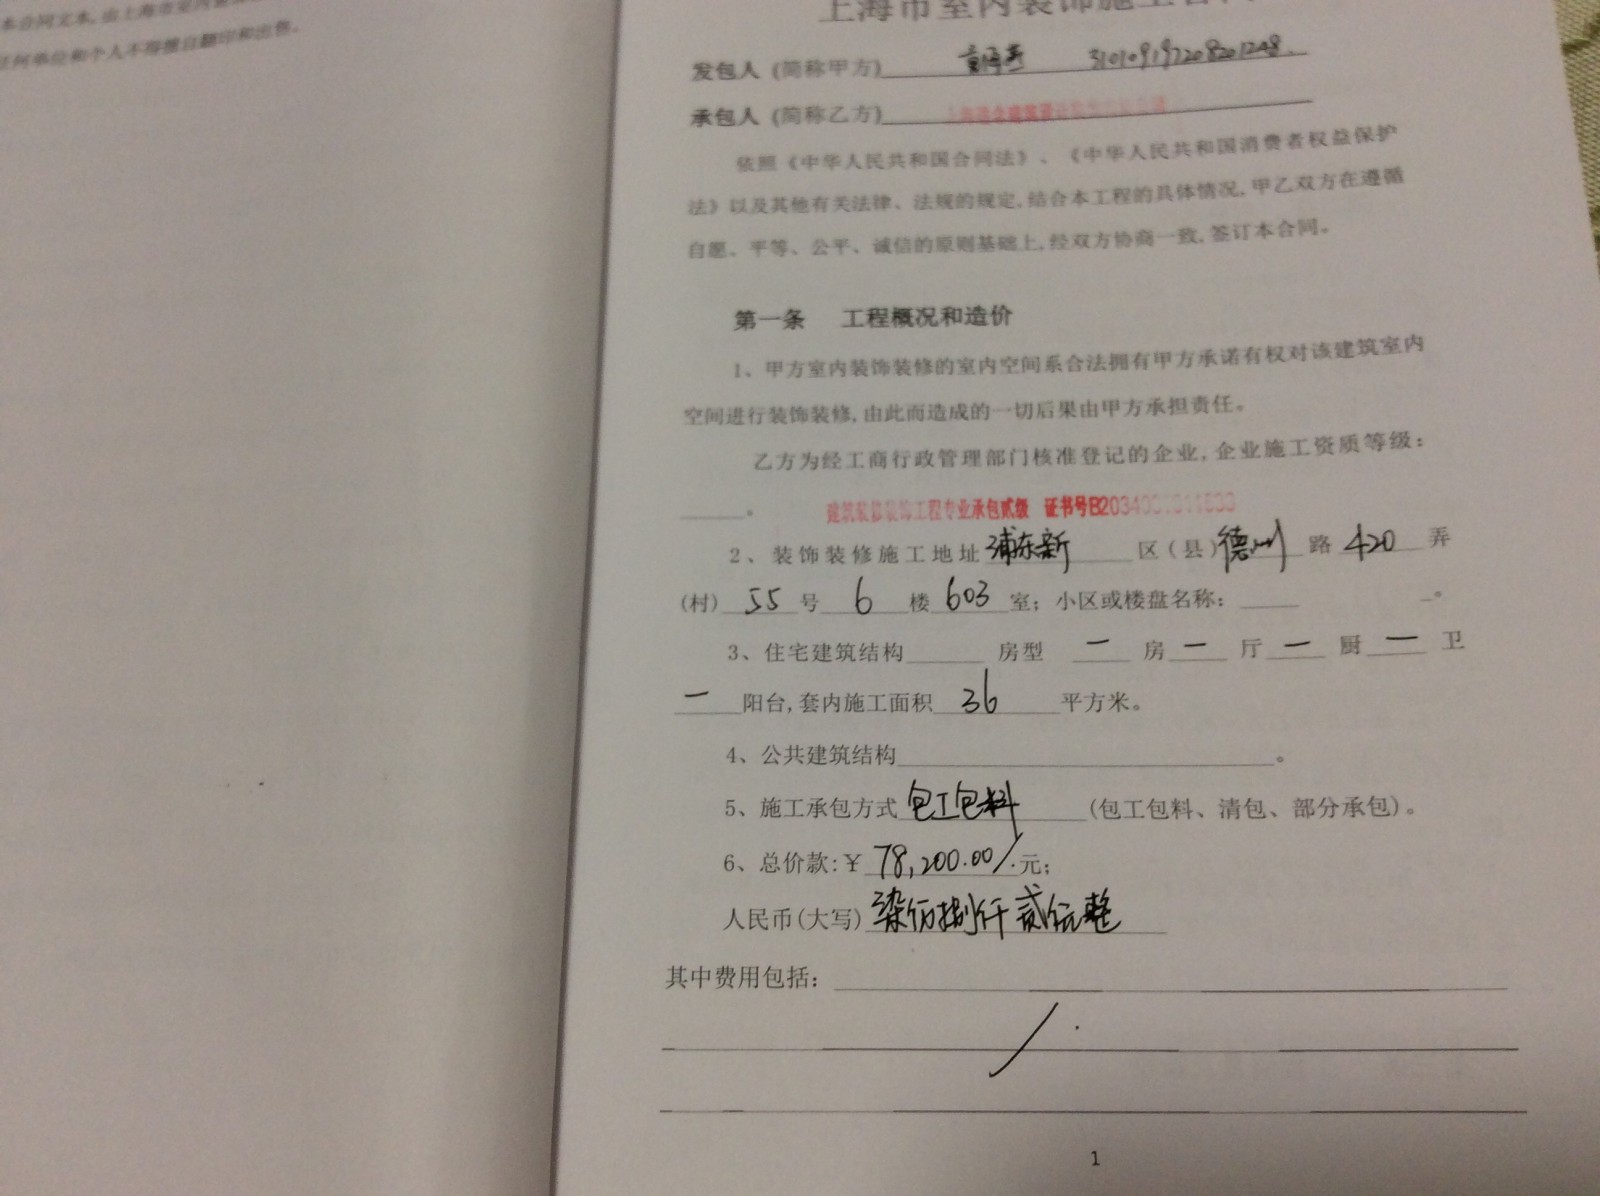 本合同文本,由上海市室内
任何单位和个人不得擅自翻印和出售。
上海市室内装饰施工合同
发包人 (简称甲方) 310109197208201248.
承包人 (简称乙方)
依照《中华人民共和国合同法》、《中华人民共和国消费者权益保护
法》以及其他有关法律、法规的规定,结合本工程的具体情况,甲乙双方在遵循
自愿、平等、公平、诚信的原则基础上,经双方协商一致,签订本合同。
第一条 工程概况和造价
1、甲方室内装饰装修的室内空间系合法拥有甲方承诺有权对该建筑室内
空间进行装饰装修,由此而造成的一切后果由甲方承担责任。
乙方为经工商行政管理部门核准登记的企业,企业施工资质等级:
。 建筑装修装饰工程专业承包贰级 证书号
2、装饰装修施工地址 浦东新 区(县) 德州 路 420 弄
(村) 55 号 6 楼 603 室; 小区或楼盘名称: 。
3、住宅建筑结构 房型 一 房 一 厅 一 厨 一 卫
一 阳台,套内施工面积 36 平方米。
4、公共建筑结构 。
5、施工承包方式 包工包料 (包工包料、清包、部分承包)。
6、总价款:¥ 78,200.00 元;
人民币(大写) 柒万捌仟贰佰元整
其中费用包括:
1